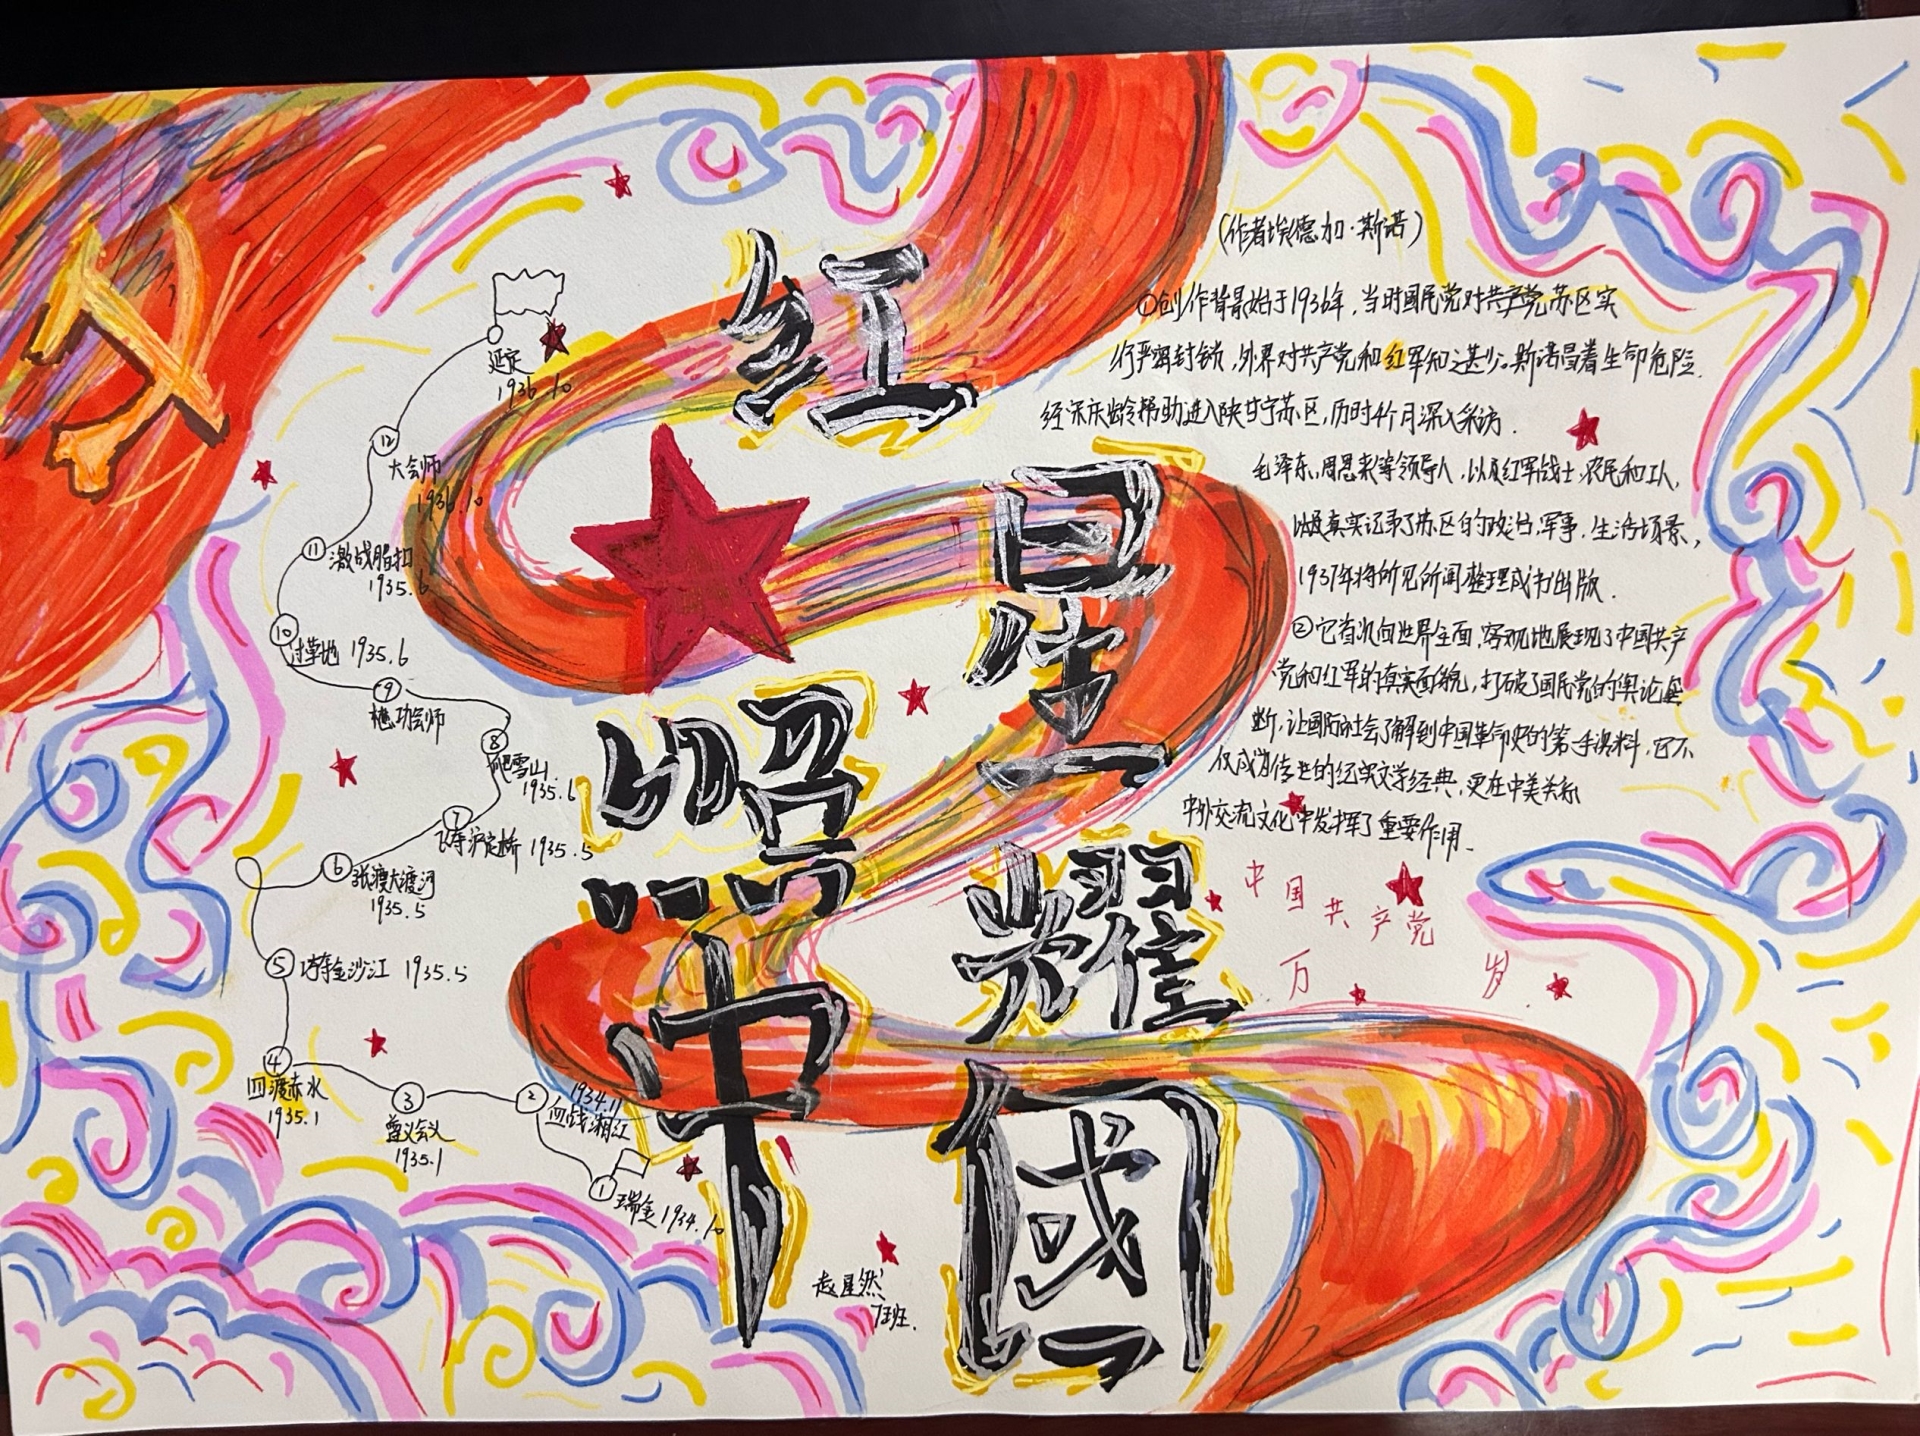 红
星
照
耀
中
國
(作者埃德加·斯诺)
①创作背景始于1936年,当时国民党对共产党苏区实
行严密封锁,外界对共产党和红军知之甚少。斯诺冒着生命危险
经宋庆龄帮助进入陕甘宁苏区,历时4个月深入采访.
毛泽东、周恩来等领导人,以及红军战士、农民和工人,
真实记录了苏区的政治,军事,生活场景,
1937年将所见所闻整理成书出版.
②它首次向世界全面,客观地展现了中国共产
党和红军的真实面貌,打破了国民党的舆论垄
断,让国际社会了解到中国革命史的第一手资料,它不
仅成为传世的纪实文学经典,更在中美关系
中外交流文化中发挥了重要作用.
中国共产党
万岁
延定
1936.10
⑫
大会师
1936.10
⑪
激战腊扣
1935.6
⑩
过草地 1935.6
⑨
懋功会师
⑧
爬雪山
1935.6
⑦
飞夺泸定桥 1935.5
⑥
强渡大渡河
1935.5
⑤
巧夺金沙江 1935.5
④
四渡赤水
1935.1
③
遵义会议
1935.1
②
1934.11
血战湘江
①
瑞金 1934.10
赵星然
7班.